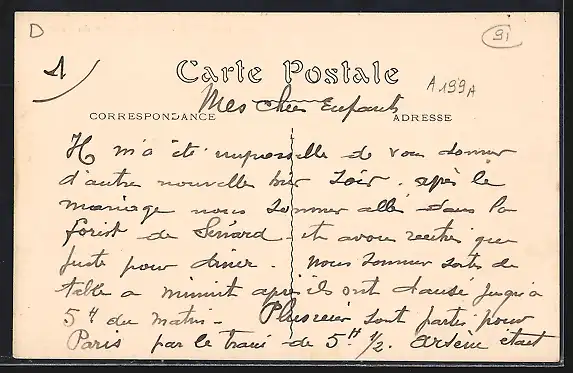 D
91
1
Carte Postale
A 199A
Mes chers Enfants
CORRESPONDANCE
ADRESSE
Il m'a été impossible de vous donner
d'autre nouvelle hier soir. après le
mariage nous sommes allé dans la
forist de Sénard et avons rentrés que
juste pour diner. Nous sommes sortis de
table a minuit après ils ont dansé jusqu'à
5H du matin - Plusieurs sont partis pour
Paris par le train de 5H 1/2. Arsène était